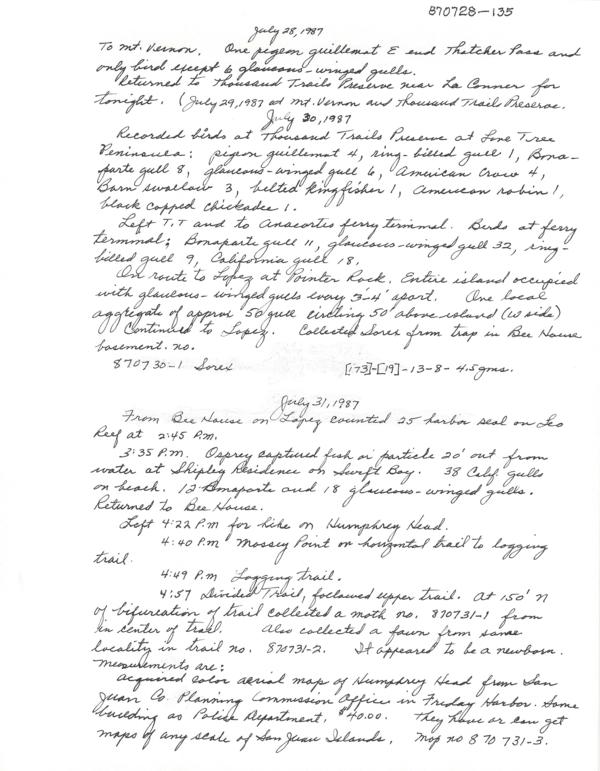 870728-135
July 28, 1987
To Mt. Vernon. One pigeon guillemot E end Thatcher Pass and
only bird except 6 glaucous-winged gulls.
Returned to Thousand Trails Preserve near La Conner for
tonight. (July 29, 1987 at Mt. Vernon and Thousand Trail Preserve.
July 30, 1987
Recorded birds at Thousand Trails Preserve at Lone Tree
Peninsula: pigeon guillemot 4, ring-billed gull 1, Bona-
parte gull 8, glaucous-winged gull 6, American Crow 4,
Barn swallow 3, belted kingfisher 1, American robin 1,
black capped chickadee 1.
Left T.T and to Anacortes ferry terminal. Birds at ferry
terminal; Bonaparte gull 11, glaucous-winged gull 32, ring-
billed gull 9, California gull 18.
On route to Lopez at Pointer Rock. Entire island occupied
with glaucous-winged gulls every 3'-4' apart. One local
aggregate of approx 50 gull circling 50' above island (W side)
Continued to Lopez. Collected Sorex from trap in Bee House
basement. no.
870730-1 Sorex [173]-[19]-13-8- 4.5gms.
July 31, 1987
From Bee House on Lopez counted 25 harbor seal on Leo
Reef at 2:45 P.M.
3:35 P.M. Osprey captured fish or particle 20' out from
water at Shipley Residence on Swift Bay. 38 Calif. gulls
on beach. 12 Bonaparte and 18 glaucous-winged gulls.
Returned to Bee House.
Left 4:22 P.M for hike on Humphrey Head.
4:40 P.M Mossey Point on horizontal trail to logging
trail.
4:49 P.M Logging trail.
4:57 Divided Trail, foclawed upper trail. At 150' N
of bifurcation of trail collected a moth no. 870731-1 from
in center of trail. Also collected a fawn from same
locality in trail no. 870731-2. It appeared to be a newborn.
Measurements are:
Acquired color aerial map of Humphrey Head from San
Juan Co. Planning Commission Office in Friday Harbor. Same
building as Police Department, $40.00. They have or can get
maps of any scale of San Juan Islands. Map no 870731-3.